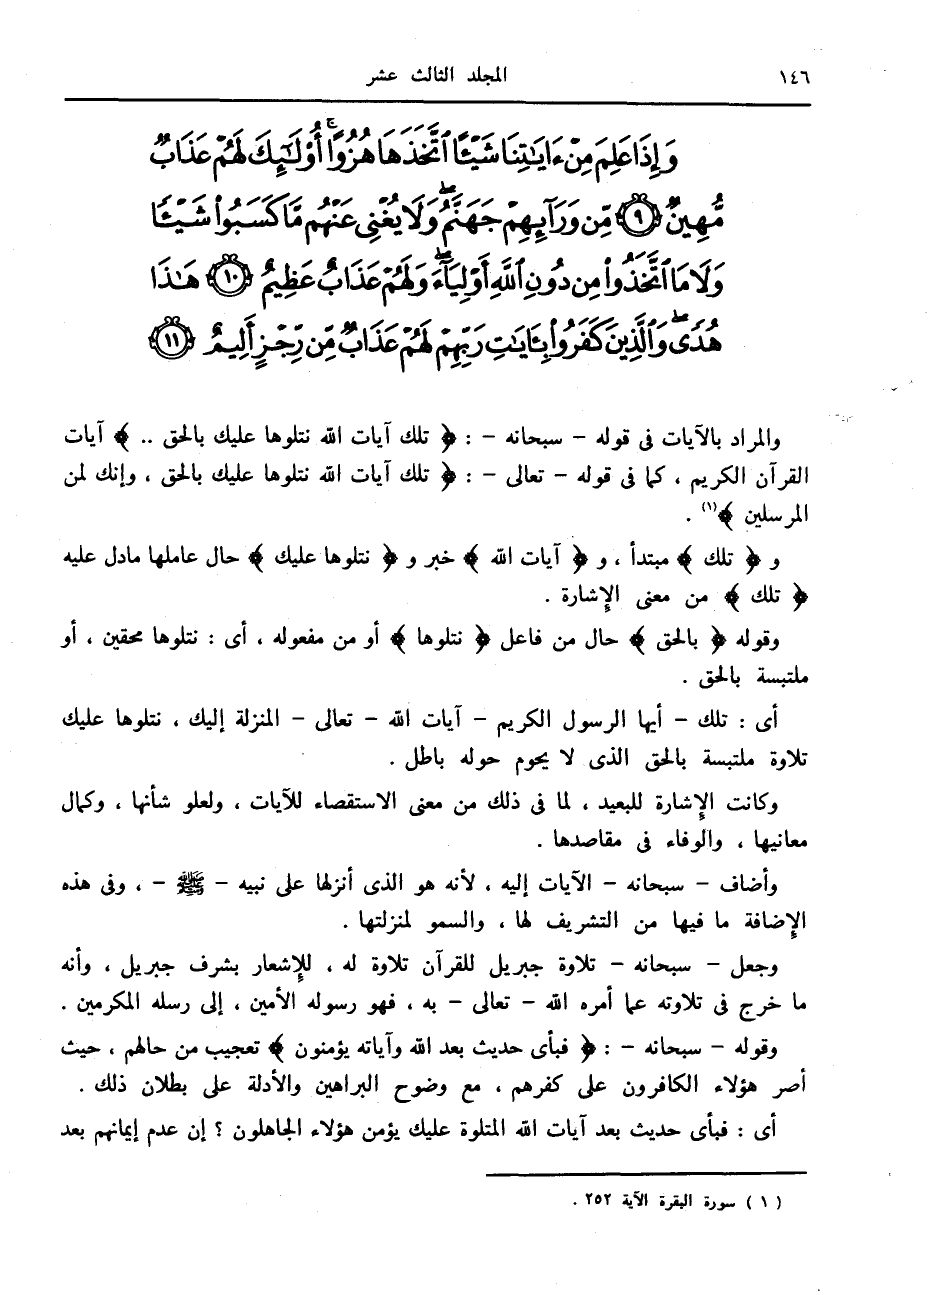 ١٤٦ المجلد الثالث عشر
وَإِذَا عَلِمَ مِنْ ءَايَـٰتِنَا شَيْـًٔا ٱتَّخَذَهَا هُزُوًا ۚ أُو۟لَـٰٓئِكَ لَهُمْ عَذَابٌ
مُّهِينٌ ٩ مِّن وَرَآئِهِمْ جَهَنَّمُ ۖ وَلَا يُغْنِى عَنْهُم مَّا كَسَبُوا۟ شَيْـًٔا
وَلَا مَا ٱتَّخَذُوا۟ مِن دُونِ ٱللَّهِ أَوْلِيَآءَ ۖ وَلَهُمْ عَذَابٌ عَظِيمٌ ١٠ هَـٰذَا
هُدًى ۖ وَٱلَّذِينَ كَفَرُوا۟ بِـَٔايَـٰتِ رَبِّهِمْ لَهُمْ عَذَابٌ مِّن رِّجْزٍ أَلِيمٌ ١١
والمراد بالآيات فى قوله - سبحانه - : ﴿ تلك آيات الله نتلوها عليك بالحق .. ﴾ آيات
القرآن الكريم ، كما فى قوله - تعالى - : ﴿ تلك آيات الله نتلوها عليك بالحق ، وإنك لمن
المرسلين ﴾(١) .
و ﴿ تلك ﴾ مبتدأ ، و ﴿ آيات الله ﴾ خبر و ﴿ نتلوها عليك ﴾ حال عاملها مادل عليه
﴿ تلك ﴾ من معنى الإشارة .
وقوله ﴿ بالحق ﴾ حال من فاعل ﴿ نتلوها ﴾ أو من مفعوله ، أى : نتلوها محقين ، أو
ملتبسة بالحق .
أى : تلك - أيها الرسول الكريم - آيات الله - تعالى - المنزلة إليك ، نتلوها عليك
تلاوة ملتبسة بالحق الذى لا يحوم حوله باطل .
وكانت الإشارة للبعيد ، لما فى ذلك من معنى الاستقصاء للآيات ، ولعلو شأنها ، وكمال
معانيها ، والوفاء فى مقاصدها .
وأضاف - سبحانه - الآيات إليه ، لأنه هو الذى أنزلها على نبيه - ﷺ - ، وفى هذه
الإضافة ما فيها من التشريف لها ، والسمو لمنزلتها .
وجعل - سبحانه - تلاوة جبريل للقرآن تلاوة له ، للإشعار بشرف جبريل ، وأنه
ما خرج فى تلاوته عما أمره الله - تعالى - به ، فهو رسوله الأمين ، إلى رسله المكرمين .
وقوله - سبحانه - : ﴿ فبأى حديث بعد الله وآياته يؤمنون ﴾ تعجيب من حالهم ، حيث
أصر هؤلاء الكافرون على كفرهم ، مع وضوح البراهين والأدلة على بطلان ذلك .
أى : فبأى حديث بعد آيات الله المتلوة عليك يؤمن هؤلاء الجاهلون ؟ إن عدم إيمانهم بعد
( ١ ) سورة البقرة الآية ٢٥٢ .